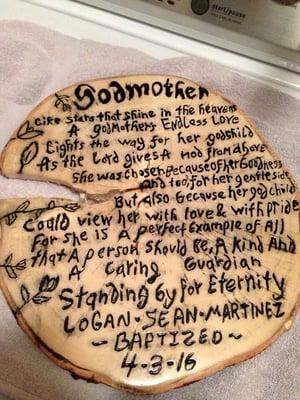 start/pause
Godmother
Like stars that shine in the heavens
A godmothers Endless Love
Lights the way for her godshild
As the Lord gives A nod from above
She was chosen Because of her Goodness
And too, for her gentle side
But also Because her god child
Could view her with love & with pride
For she is A perfect Example of All
that A person should Be, A kind And
A caring Guardian
Standing by for Eternity
LOGAN-SEAN-MARTINEZ
~ BAPTIZED ~
4-3-16